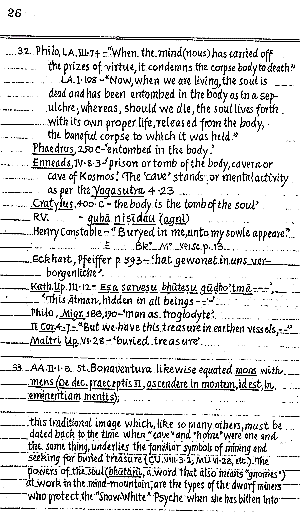 26
32. Philo, L.A. III.74 – "When the mind (nous) has carried off
the prizes of virtue, it condemns the corpse body to death."
L.A. I.108 – "Now, when we are living, the soul is
dead and has been entombed in the body as in a sep-
ulchre; whereas, should we die, the soul lives forth
with its own proper life, released from the body,
the baneful corpse to which it was held."
Phaedrus, 250 C – 'entombed in the body.'
Enneads, IV.8.3 – 'prison or tomb of the body, cavern or
cave of Kosmos'. The 'cave' stands for mental activity
as per the Yoga sutra 4-23
Cratylus, 400.C – the body is the tomb of the soul'
R.V. - guhā niṣīdau (agni)
Henry Constable – "Buryed in me, unto my sowle appeare."
p. 13
Eckhart, Pfeiffer p 593 – 'hat gewonet in uns ver-
borgenliche'.
Kath. Up. III.12 – Eṣa sarveṣu bhūteṣu gūḍho'tmā ---',
'This ātman, hidden in all beings ---'.
Philo, Migr. 188, 190 – 'man as troglodyte'.
II Cor 4-7 – "But we have this treasure in earthen vessels, --"
Maitri Up. VI.28 – 'buried treasure'.
33. A.A. II.1.8 St. Bonaventura likewise equated mons with
mens (De dec. praeceptis II, ascendere in montem, id est, in
eminentiam mentis);
this traditional image which, like so many others, must be
dated back to the time when "cave" and "home" were one and
the same thing, underlies the familiar symbols of mining and
seeking for buried treasure (CU. VIII.3.2, MU. VI.28, etc.). The
powers of the soul (bhūtāni, a word that also means "gnomes")
at work in the mind-mountain, are the types of the dwarf miners
who protect the "Snow-White" Psyche when she has bitten into